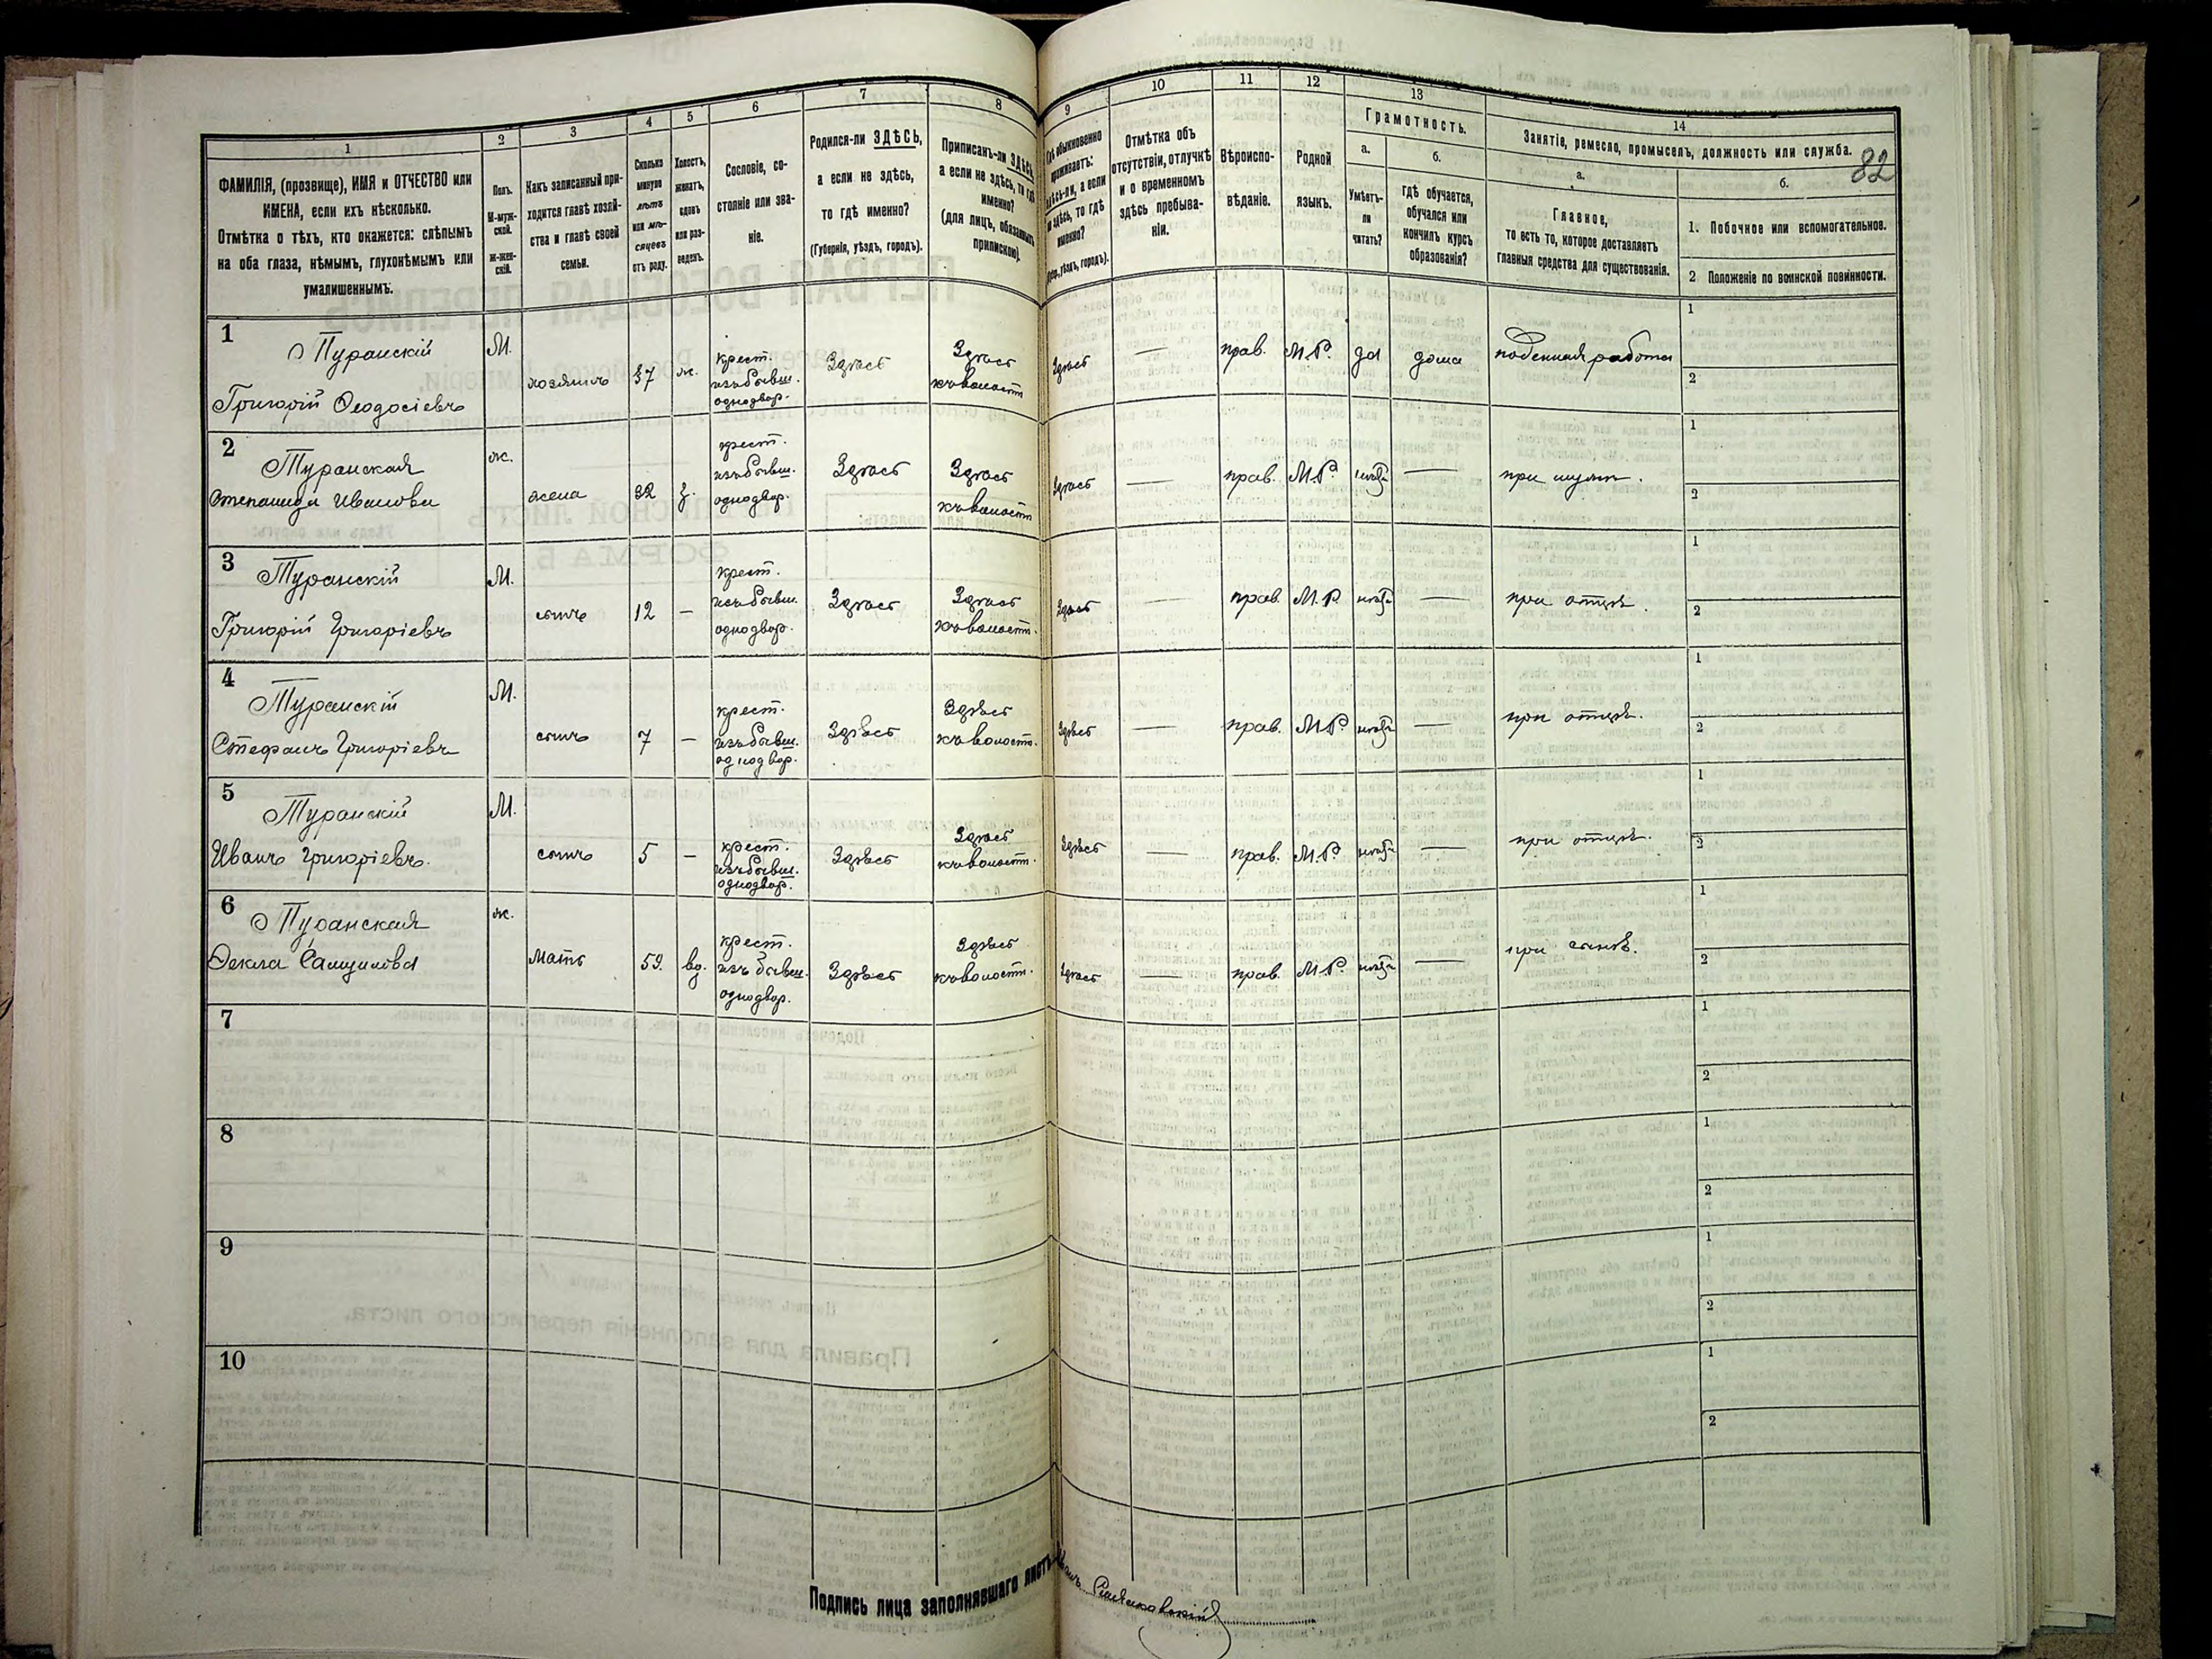 82
1
2
3
4
5
6
7
8
9
10
11
12
13
14
ФАМИЛІЯ, (прозвище), ИМЯ и ОТЧЕСТВО или
ИМЕНА, если ихъ нѣсколько.
Отмѣтка о тѣхъ, кто окажется: слѣпымъ
на оба глаза, нѣмымъ, глухонѣмымъ или
умалишеннымъ.
Полъ.
М-муж-
ской.
ж-жен-
скій.
Какъ записанный при-
ходится главѣ хозяй-
ства и главѣ своей
семьи.
Сколько
минуло
лѣтъ
или мѣ-
сяцевъ
отъ роду.
Холостъ,
женатъ,
вдовъ
или раз-
веденъ.
Сословіе, со-
стояніе или зва-
ніе.
Родился-ли ЗДѢСЬ,
а если не здѣсь,
то гдѣ именно?
(Губернія, уѣздъ, городъ).
Приписанъ-ли ЗДѢСЬ,
а если не здѣсь, то гдѣ
именно?
(для лицъ, обязанныхъ
припискою).
Гдѣ обыкновенно
проживаетъ:
здѣсь-ли, а если
не здѣсь, то гдѣ
именно?
(Губ., уѣздъ, городъ).
Отмѣтка объ
отсутствіи, отлучкѣ
и о временномъ
здѣсь пребыва-
ніи.
Вѣроиспо-
вѣданіе.
Родной
языкъ.
Грамотность.
а.
Умѣетъ-
ли
читать?
б.
гдѣ обучается,
обучался или
кончилъ курсъ
образованія?
Занятіе, ремесло, промыселъ, должность или служба.
а.
Главное,
то есть то, которое доставляетъ
главныя средства для существованія.
б.
1. Побочное или вспомогательное.
2 Положеніе по воинской повинности.
1
Туранскій
Григорій Ѳеодосіевъ
М.
хозяинъ
37
ж.
крест.
изъ бывш.
однодвор.
Здѣсь
Здѣсь
къ волости
Здѣсь
—
прав.
М.Р.
да
дома
поденная работа
1
2
2
Туранская
Степанида Иванова
ж.
жена
32
з.
крест.
изъ бывш.
однодвор.
Здѣсь
Здѣсь
къ волости
Здѣсь
—
прав.
М.Р.
нѣтъ
—
при мужѣ.
1
2
3
Туранскій
Григорій Григоріевъ
М.
сынъ
12
—
крест.
изъ бывш.
однодвор.
Здѣсь
Здѣсь
къ волости.
Здѣсь
—
прав.
М.Р.
нѣтъ
—
при отцѣ.
1
2
4
Туранскій
Стефанъ Григоріевъ
М.
сынъ
7
—
крест.
изъ бывш.
однодвор.
Здѣсь
Здѣсь
къ волости.
Здѣсь
—
прав.
М.Р.
нѣтъ
—
при отцѣ.
1
2
5
Туранскій
Иванъ Григоріевъ.
М.
сынъ
5
—
крест.
изъ бывш.
однодвор.
Здѣсь
Здѣсь
къ волости.
Здѣсь
—
прав.
М.Р.
нѣтъ
—
при отцѣ.
1
2
6
Туранская
Ѳекла Самуилова
ж.
мать
59.
вд.
крест.
изъ бывш.
однодвор.
Здѣсь
Здѣсь
къ волости.
Здѣсь
—
прав.
М.Р.
нѣтъ
—
при сынѣ.
1
2
7
1
2
8
1
2
9
1
2
10
1
2
Подпись лица заполнявшаго листъ